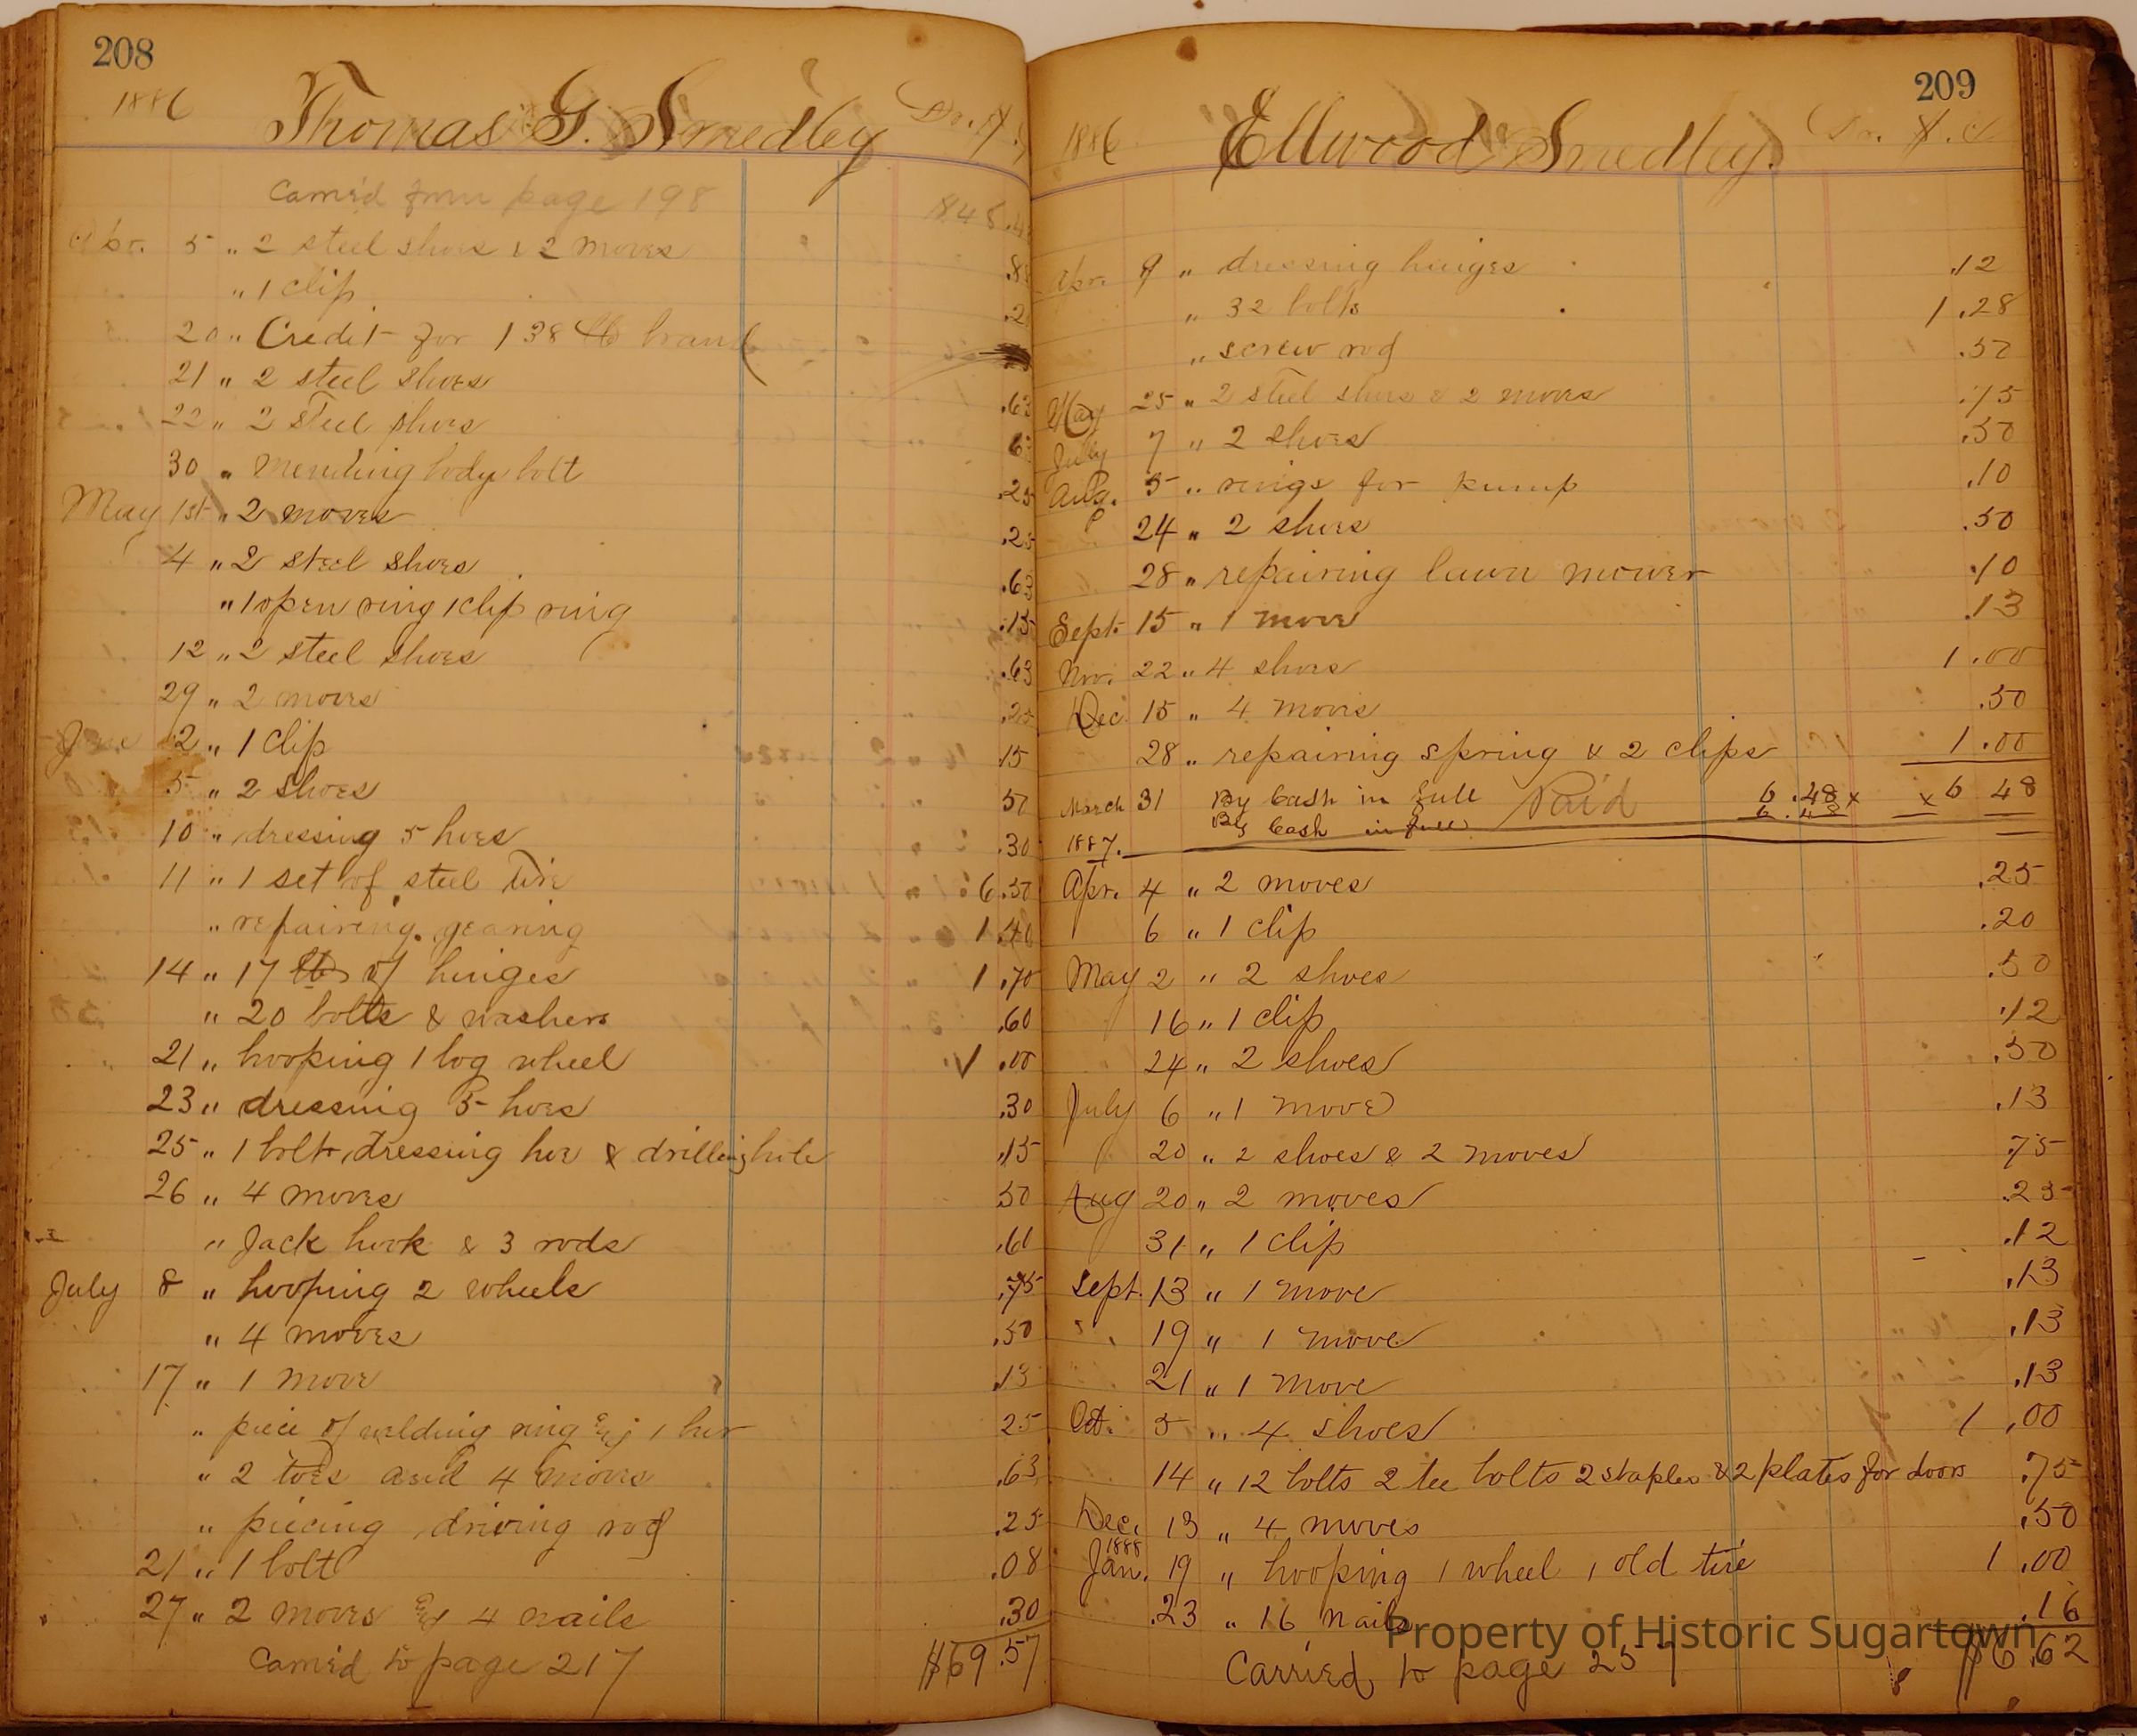 208
1886 Thomas G. Smedley Dr. $
Carried from page 198 848.4
Apr. 5 " 2 steel shoes & 2 moves .88
" 1 clip .2
20 " Credit for 138 lb
21 " 2 steel shoes .63
22 " 2 steel shoes 6
30 " Mending body bolt .25
May 1st " 2 moves .25
4 " 2 steel shoes .63
" 1 open ring 1 clip ring .15
12 " 2 steel shoes .63
29 " 2 moves .25
June 2 " 1 clip 15
5 " 2 shoes 50
10 " dressing 5 hoes .30
11 " 1 set of steel tire 6.50
" repairing gearing 1.40
14 " 17 lbs of hinges 1.70
" 20 bolts & washers .60
21 " hooping 1 log wheel 1.00
23 " dressing 5 hoes .30
25 " 1 bolt dressing hoe & drilling hole .15
26 " 4 moves 50
" Jack hook & 3 rods .61
July 8 " hooping 2 wheels .75
" 4 moves .50
17 " 1 move .13
" piece of welding ring & 1 25
" 2 toes and 4 moves .63
" piecing driving rod .25
21 " 1 bolt .08
27 " 2 moves & 4 nails .30
Carried to page 217 $69.57
209
1886 Ellwood Smedley. Dr. $.c
Apr. 9 " dressing hinges .12
" 32 bolts 1.28
" screw rod .50
May 25 " 2 steel shoes & 2 moves .75
July 7 " 2 shoes .50
Aug. 5 " rings for pump .10
24 " 2 shoes .50
28 " repairing lawn mower .10
Sept. 15 " 1 move .13
Nov. 22 " 4 shoes 1.00
Dec. 15 " 4 moves .50
28 " repairing spring & 2 clips 1.00
March 31 By Cash in full Paid 6.48 x x 6 48
By Cash in full 6.48
1887.
Apr. 4 " 2 moves .25
6 " 1 clip .20
May 2 " 2 shoes .50
16 " 1 clip .12
24 " 2 shoes .50
July 6 " 1 move .13
20 " 2 shoes & 2 moves .75
Aug 20 " 2 moves .25
31 " 1 clip .12
Sept. 13 " 1 move .13
" 19 " 1 move .13
21 " 1 move .13
Oct. 5 " 4 shoes 1.00
14 " 12 bolts 2 tee bolts 2 staples & 2 plates for doors .75
Dec. 13 " 4 moves .50
1888
Jan. 19 " hooping 1 wheel 1 old tire 1.00
23 " 16 nails .16
Carried to page 257 $6.62
Property of Historic Sugartown